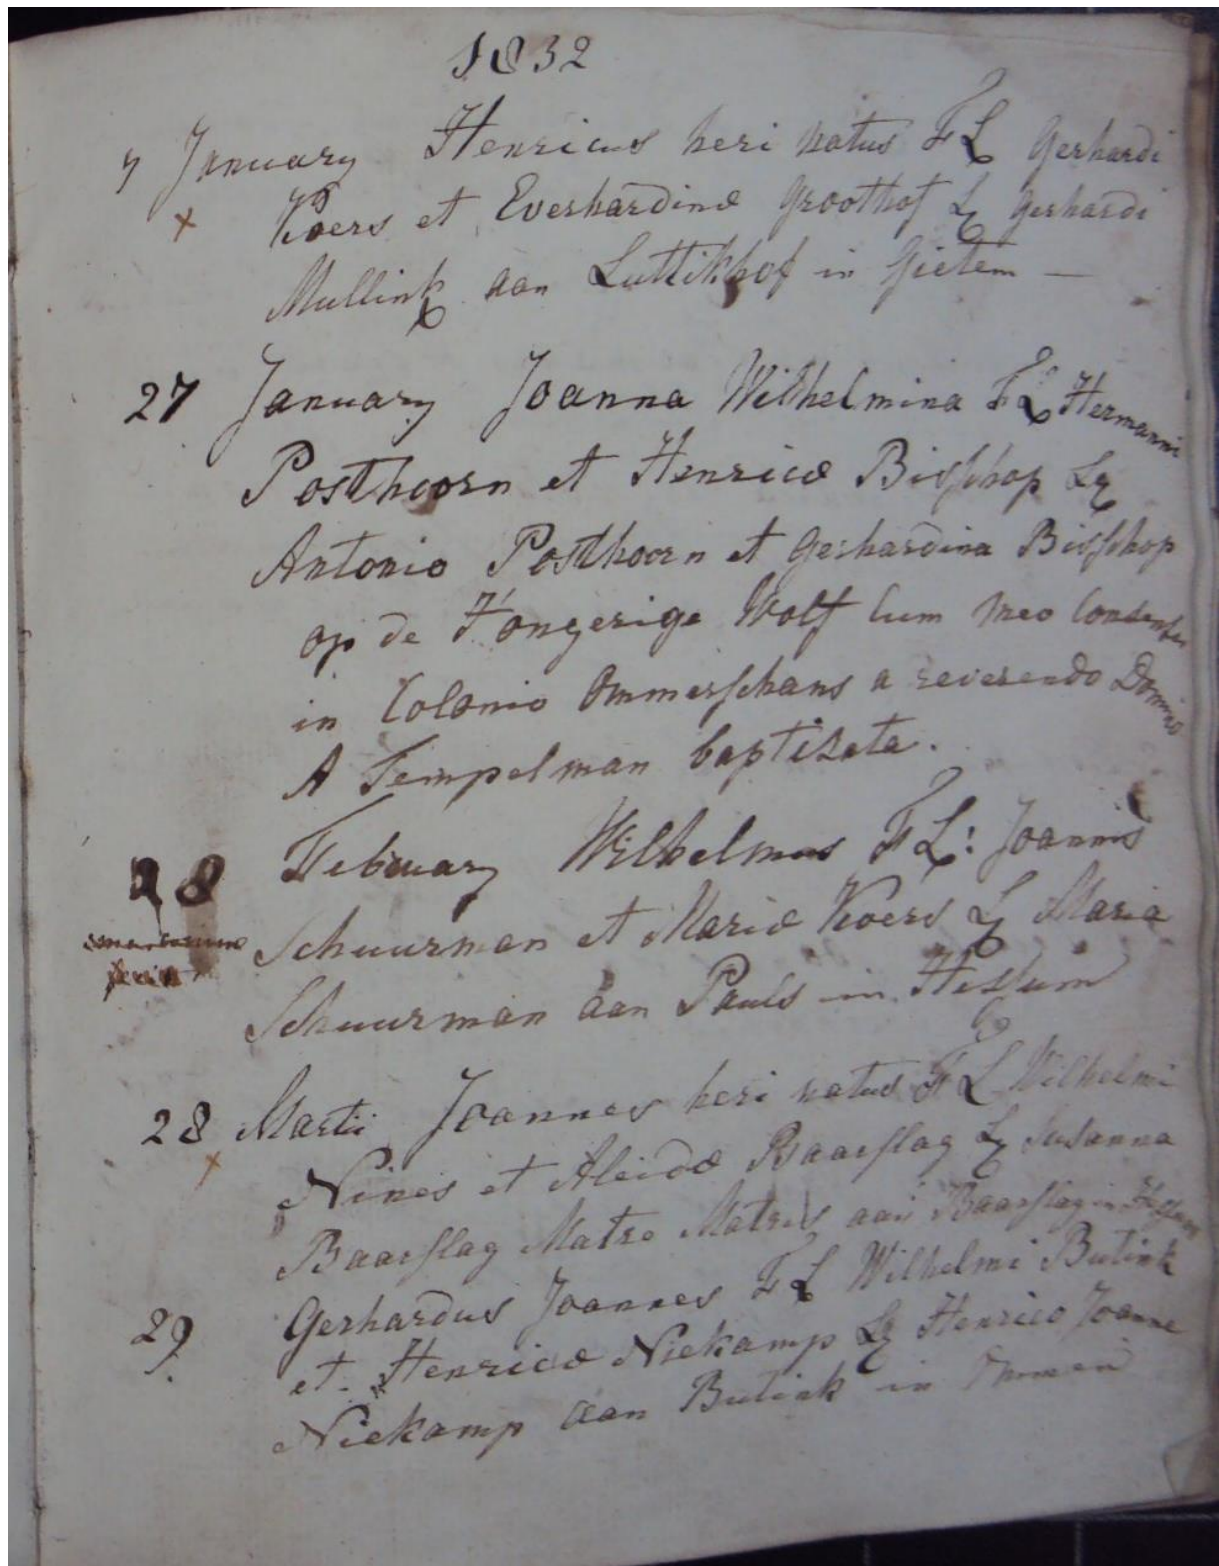 1832
7 January Henricus heri natus F L Gerhardi
Koers et Everhardinæ Groothof L Gerhardi
Mullink aan Luttikhof in Gietem —
27 January Joanna Wilhelmina F L Hermanni
Posthoorn et Henricæ Bisschop L
Antonio Posthoorn et Gerhardina Bisschop
op de Hongerige Wolf cum meo consensu
in Colonio Ommerschans a reverendo Domino
A Tempelman baptizata.
28 February Wilhelmus F L: Joannis
Schuurman et Mariæ Koers L Maria
Schuurman aan Pauls in Hessum
28 Martii Joannes heri natus F L Wilhelmi
Nines et Aleidæ Baarslag L Susanna
Baarslag Matre Matris aan Baarslag in Hessum
29 Gerhardus Joannes F L Wilhelmi Butink
et Henricæ Niekamp L Henrico Joanne
Niekamp aan Butink in Ommen